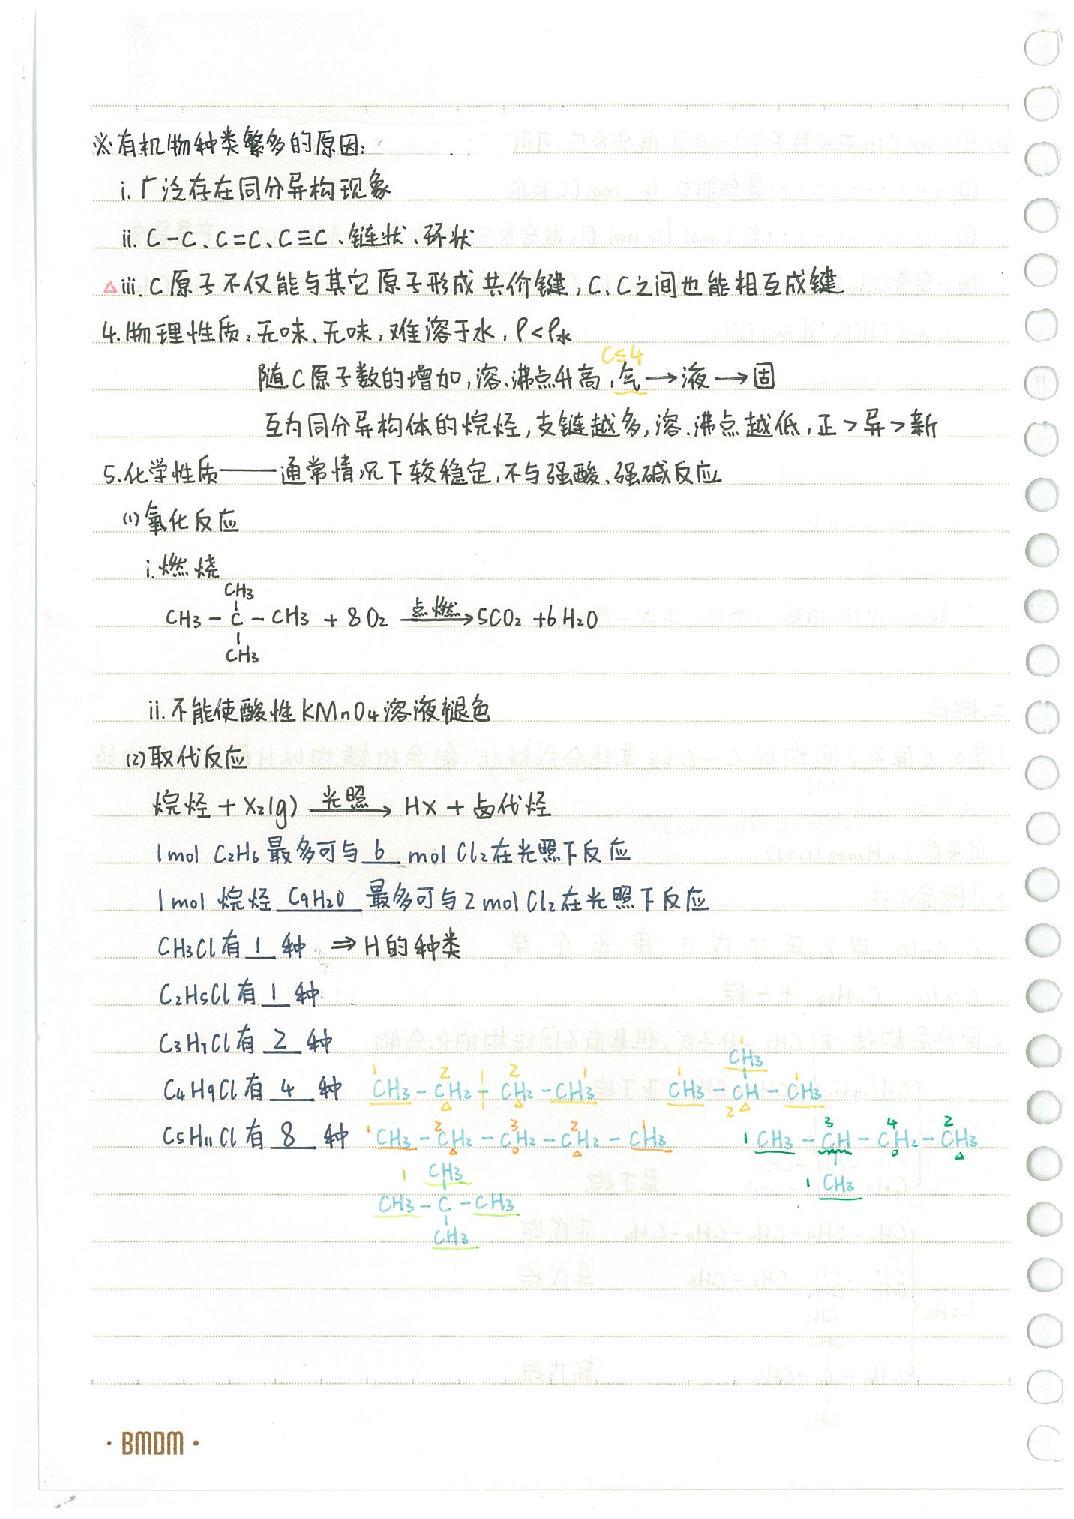 ※有机物种类繁多的原因:
i. 广泛存在同分异构现象
ii. C-C、C=C、C≡C、链状、环状
△iii. C原子不仅能与其它原子形成共价键,C、C之间也能相互成键
4.物理性质:无味、无味,难溶于水,ρ<ρ水
C≤4
随C原子数的增加,溶.沸点升高,气→液→固
互为同分异构体的烷烃,支链越多,溶.沸点越低,正>异>新
5.化学性质——通常情况下较稳定,不与强酸、强碱反应
(1)氧化反应
i.燃烧
CH3
CH3-C-CH3 + 8O2 点燃→ 5CO2 +6H2O
CH3
ii.不能使酸性KMnO4溶液褪色
(2)取代反应
烷烃+X2(g) 光照→ HX + 卤代烃
1mol C2H6最多可与 6 mol Cl2在光照下反应
1mol 烷烃 C9H20 最多可与2molCl2在光照下反应
CH3Cl有 1 种 ⇒H的种类
C2H5Cl有 1 种
C3H7Cl有 2 种
1 2 2 1 1 CH3
C4H9Cl有 4 种 CH3-CH2-CH2-CH3 CH3-CH-CH3
2
C5H11Cl有 8 种 1 CH3-CH2-CH2-CH2-CH3 1 CH3-CH-CH2-CH3
2 3 2 1 3 4 2
1 CH3 1 CH3
CH3-C-CH3
CH3
·BMDM·